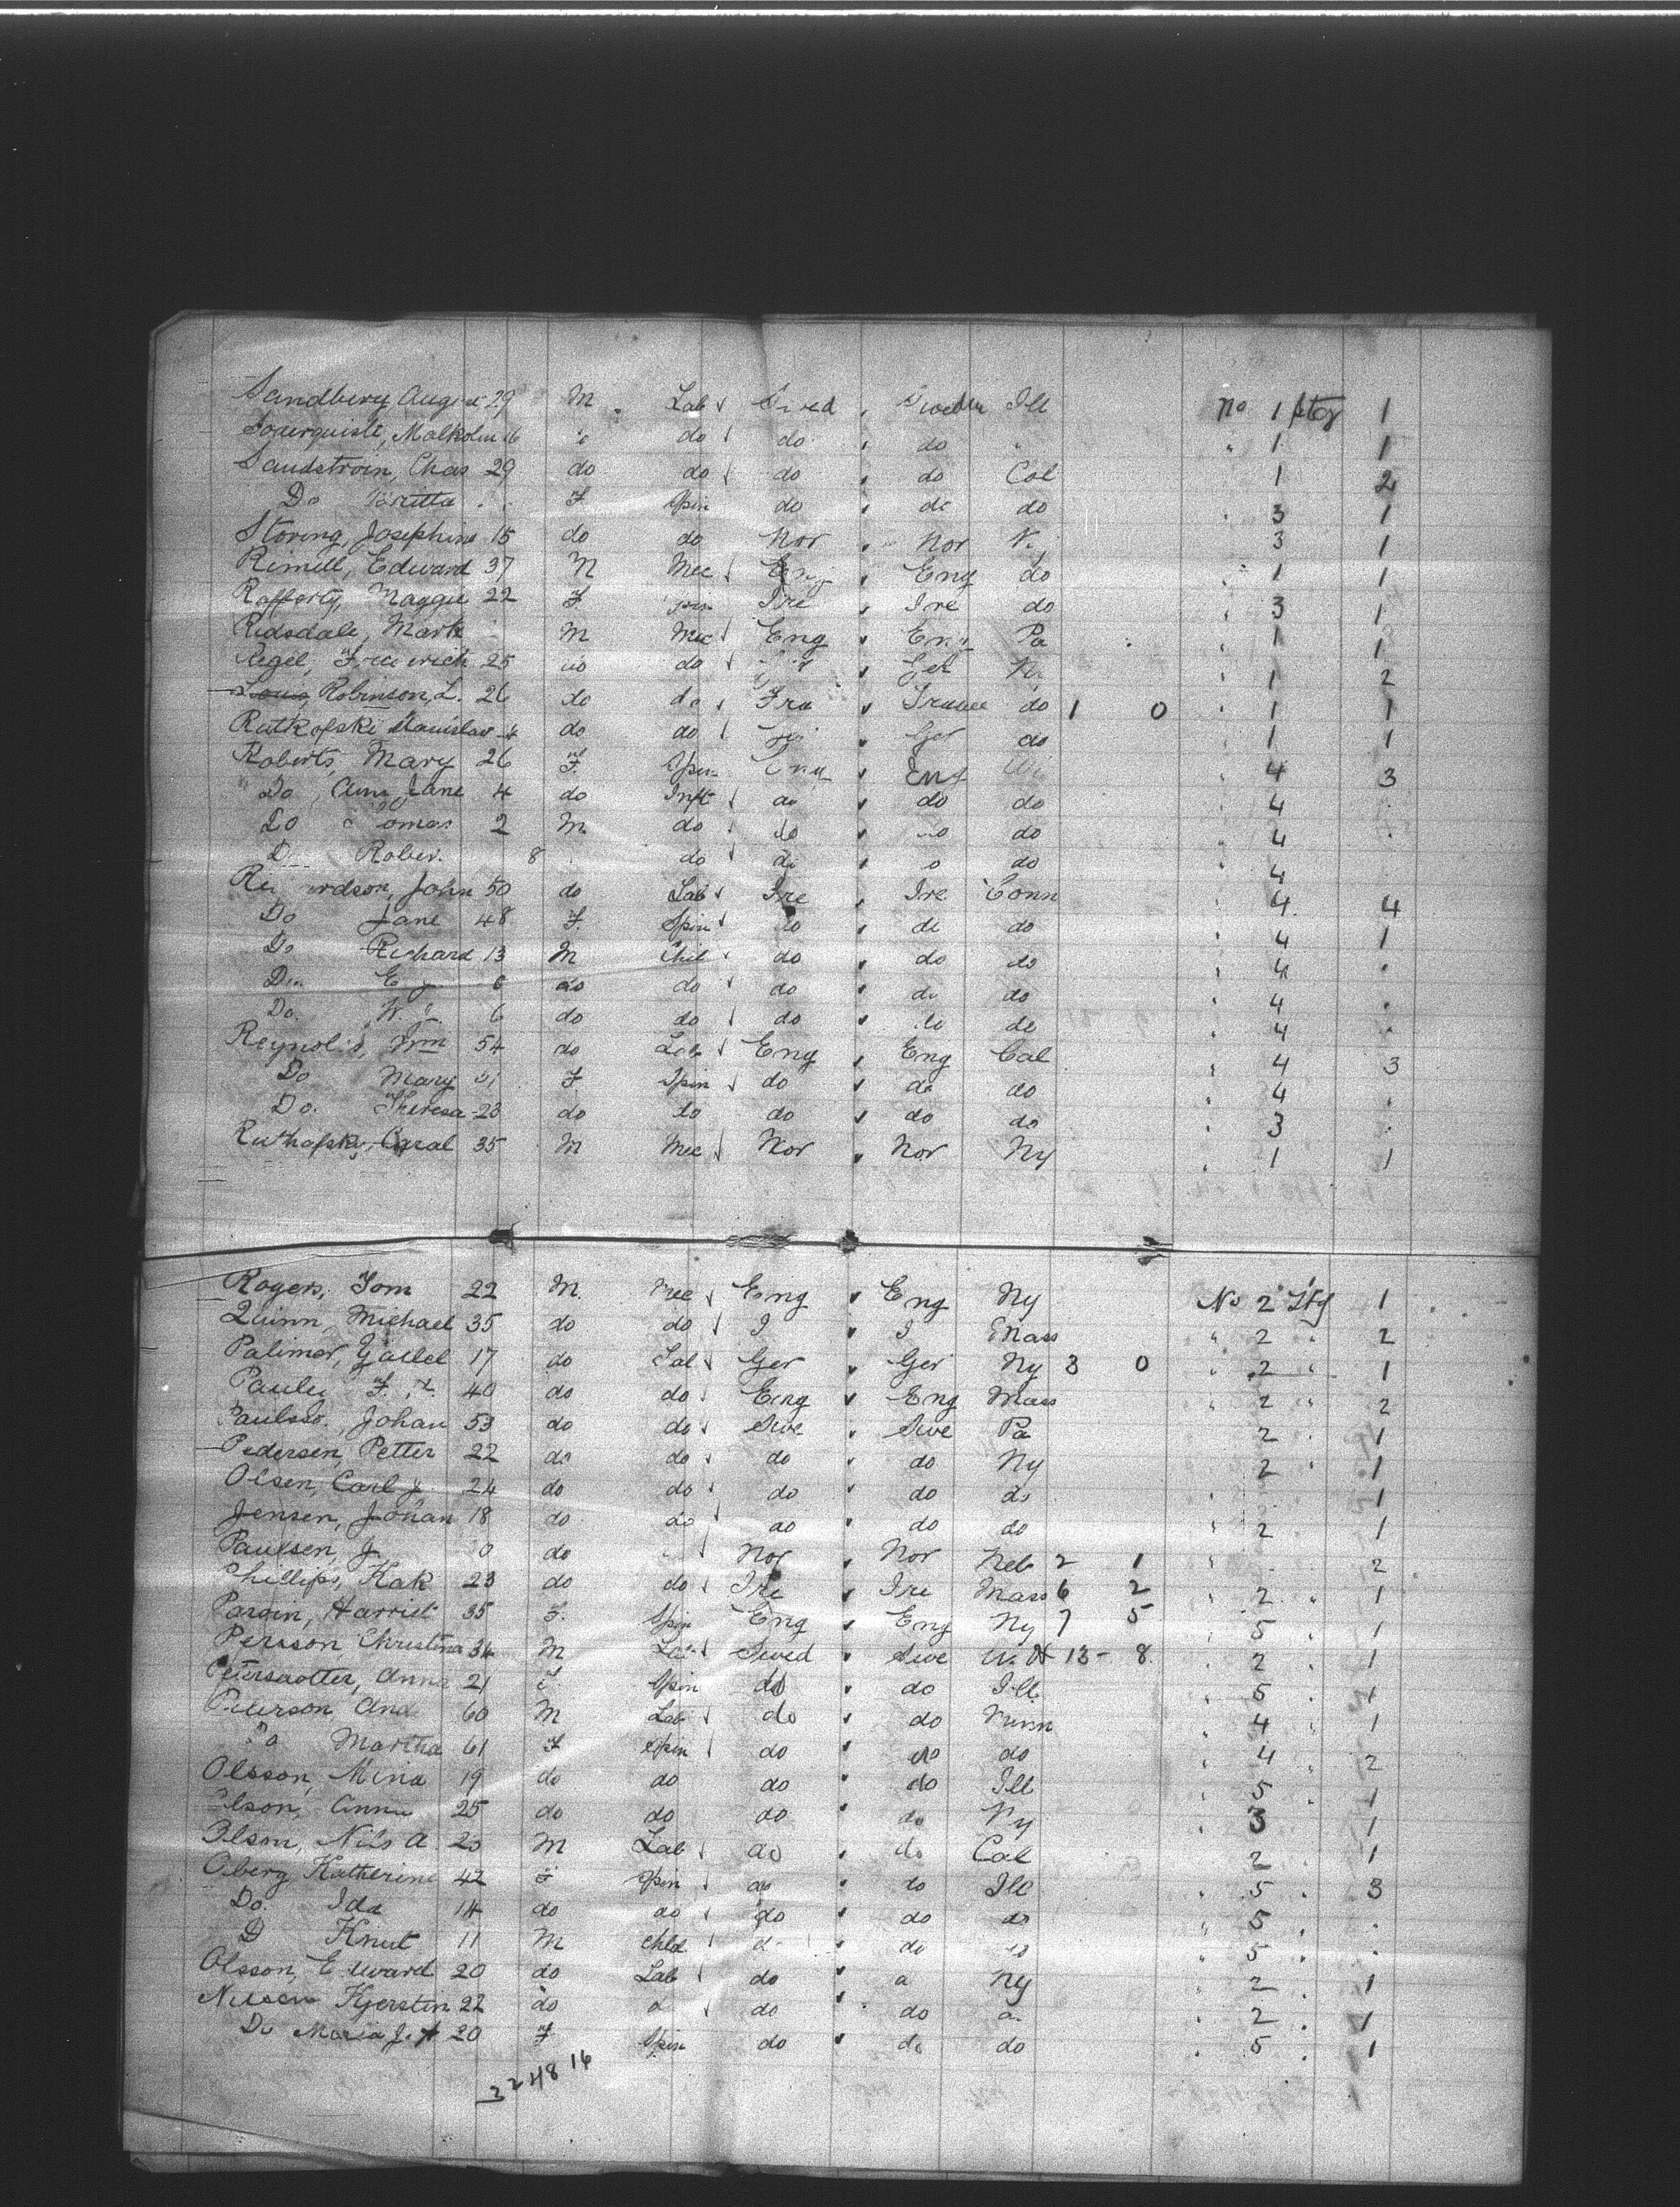 Sandberg August 29 M Lab Swed Sweden Ill No 1 stg 1
Soderquiste, Malkolm 16 " do do do " " 1 1
Sandstrom, Chas 29 do do do do Col 1 2
Do Britta F Spin do do do 3 1
Storing, Josephine 15 do do Nor Nor N.j 3 1
Rimell, Edward 37 M Mec Eng Eng do 1 1
Rafferty, Maggie 22 F Spin Ire Ire do 3 1
Ridsdale, Mark M Mec Eng Eng Pa 1 1
Regel, Frederich 25 do do Ger 1 2
Robinson, L. 26 do do Fra France do 1 0 1 1
Ratkofski Stanislav do do Ger do 1 1
Roberts, Mary 26 F. Spin Eng Eng 4 3
Do, Ann Jane 4 do Inft do do do 4
Do Tomas 2 M do do do do 4
Do Rober 8 do do do do 4
Richardson, John 50 do Lab Ire Ire Conn 4 4
Do Jane 48 F. Spin do do do 4 1
Do Richard 13 M Chil do do do 4
Do 6 do do do do do 4
Do. 6 do do do do do 4
Reynolds, Wm 54 do Lab Eng Eng Cal 4 3
Do Mary F Spin do do do 4
Do. Theresa 28 do do do do do 3
Ruthofsky, Caral 35 M Mec Nor Nor Ny 1 1
Rogers, Tom 22 M. Mec Eng Eng Ny No 2 Stg 1
Quinn, Michael 35 do do I I Mass " 2 " 2
Palimer, 17 do Lab Ger Ger Ny 3 0 " 2 1
Pauley F. 40 do do Eng Eng Mass " 2 " 2
Paulsso, Johan 53 do do Swe Swe Pa 2 1
Pedersen, Petter 22 do do do do Ny 2 1
Olsen, Carl J. 24 do do do do do 1
Jensen, Johan 18 do do do do do 2 1
Paulsen, J. do Nor Nor Neb 2 1 2
Phillips, Kak 23 do do Ire Ire Mass 6 2 2 1
Parsin, Harriet 35 F. Spin Eng Eng Ny 7 5 5 1
Persson Christina 34 M Lab Swed Swe 13 - 8 2 1
Petersdotter, Anna 21 F Spin do do Ill 5 1
Peterson And 60 M Lab do do Minn 4 1
Do Martha 61 F Spin do do do 4 2
Olsson, Mina 19 do do do do Ill 5 1
Olson, Anna 25 do do do do Ny 3 1
Olson, Nils A. M Lab do do Cal 2 1
Oberg Katherine 42 F Spin do do Ill 5 3
Do. Ida 14 do do do do do 5
D Knut 11 M Chld do do do 5
Olsson, Edward 20 do Lab do Ny 2 1
Nilsen Kjersten 22 do do do 2 1
Do Maria J. 20 F Spin do do do 5 1